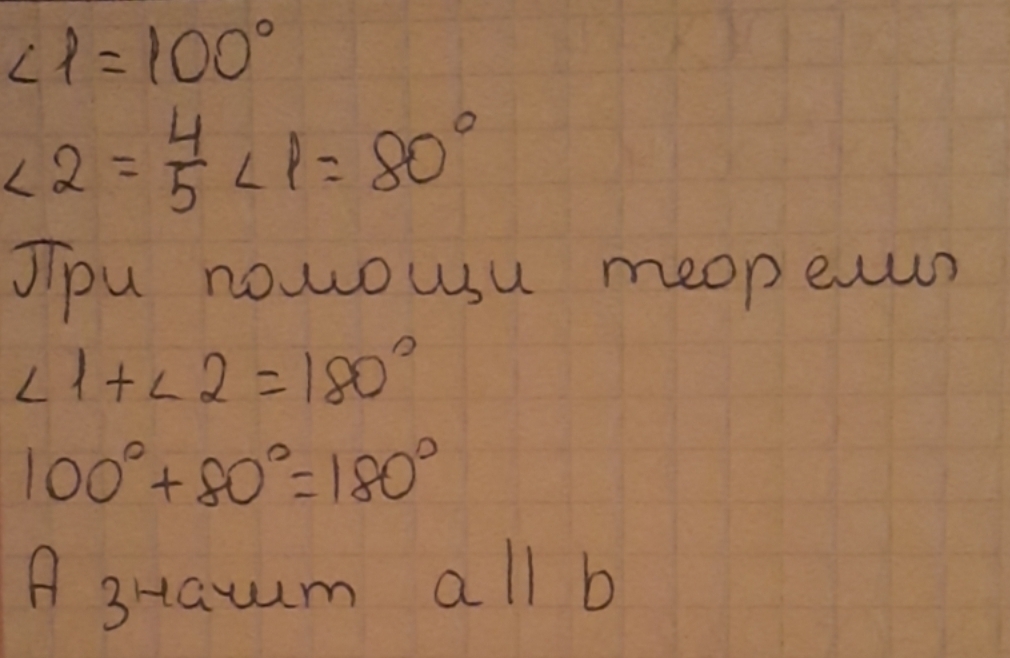 ∠1 = 100°
∠2 = 4/5 ∠1 = 80°
При помощи теоремы
∠1 + ∠2 = 180°
100° + 80° = 180°
А значит a || b